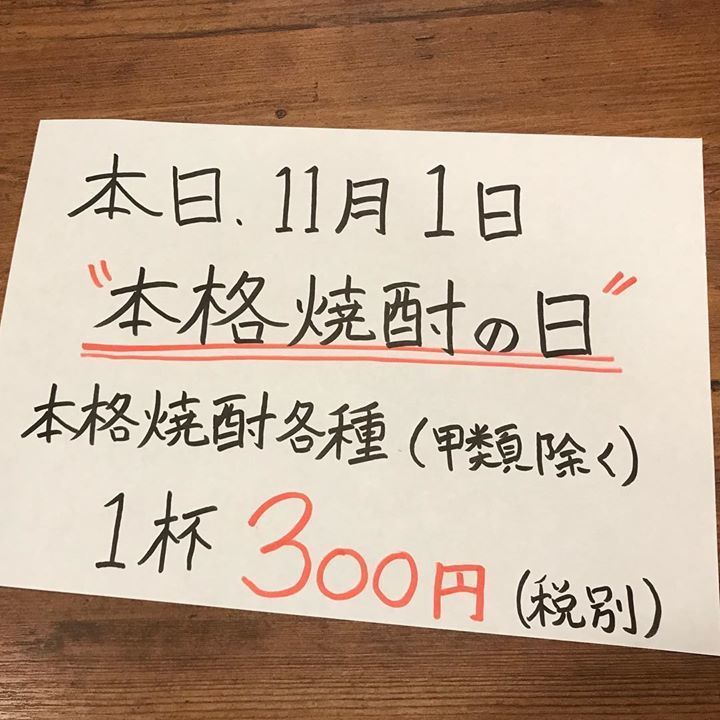 本日、11月1日
"本格焼酎の日"
本格焼酎各種(甲類除く)
1杯 300円(税別)